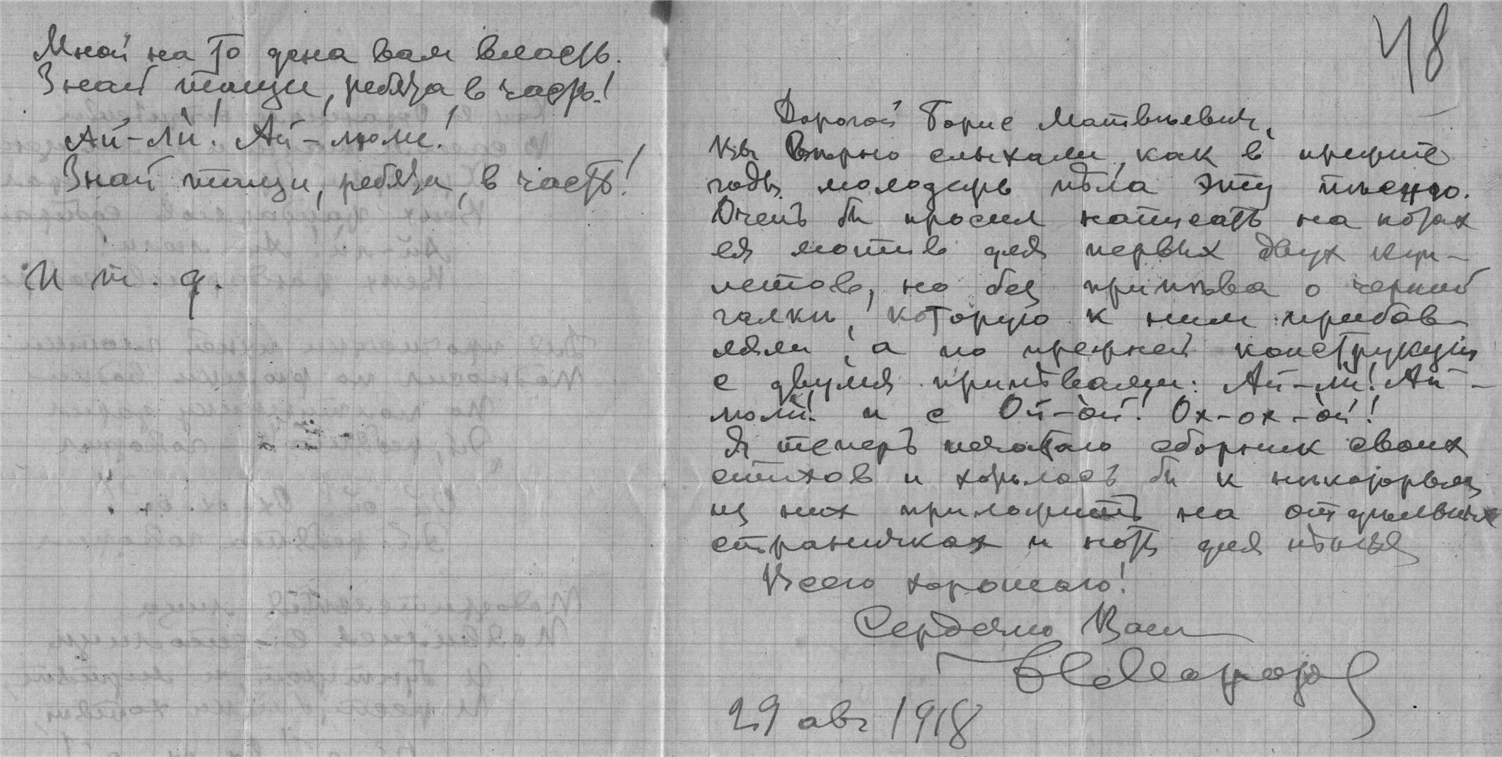 Мной на то дана вам власть.
Знай тащи, ребята в часть!
Ай-ли! Ай-люли!
Знай тащи, ребята, в часть!
И т. д.
48
Дорогой Борис Матвѣевич,
Вы вѣрно слыхали, как в прежніе
годы молодежь пѣла эту пѣсню.
Очень бы просил написать на нотах
ея мотив для первых двух куп-
летов, но без припѣва о черной
галкѣ, которую к ним прибав-
ляли, а по прежней конструкціи
с двумя припѣвами: Ай-ли! Ай-
люли! и с Ой-ой! Ох-ох-ой!
Я теперь печатаю сборник своих
стихов и хотѣлось бы к нѣкоторым
из них приложить на отдѣльных
страничках и ноты для пѣнія
Всего хорошаго!
Сердечно Ваш
Н Морозов
29 авг 1918